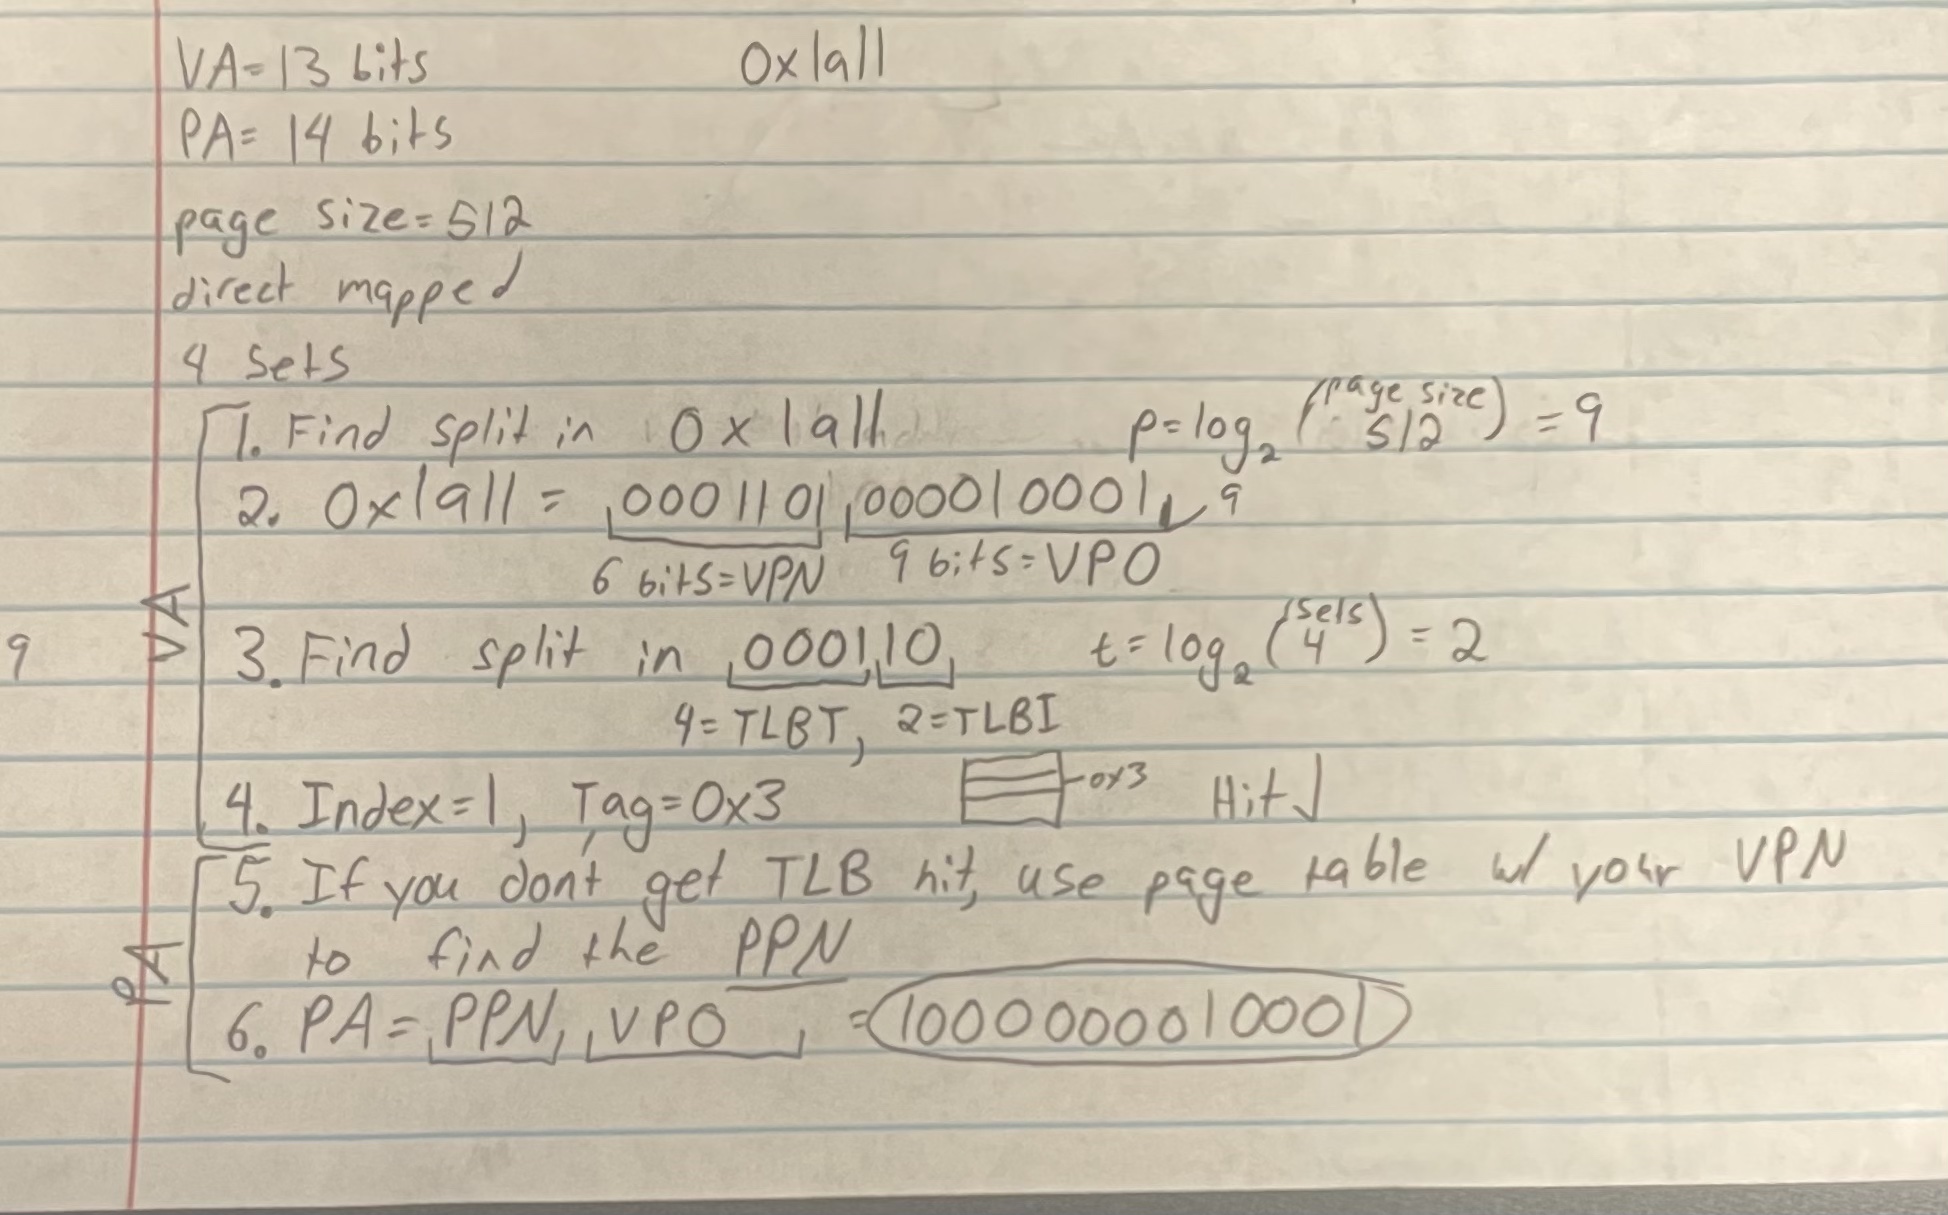 VA=13 bits 0x1a11
PA= 14 bits
page size=512
direct mapped
4 sets
1. Find split in 0x1a11 p=log₂(page size 512)=9
2. 0x1a11 = 0001101 000010001 9
6 bits=VPN 9 bits=VPO
VA
9 3. Find split in 000110 t=log₂(sets 4)=2
4=TLBT, 2=TLBI
4. Index=1, Tag=0x3 0x3 Hit
5. If you dont get TLB hit, use page table w/ your VPN
PA to find the PPN
6. PA=PPN, VPO =10000000010001